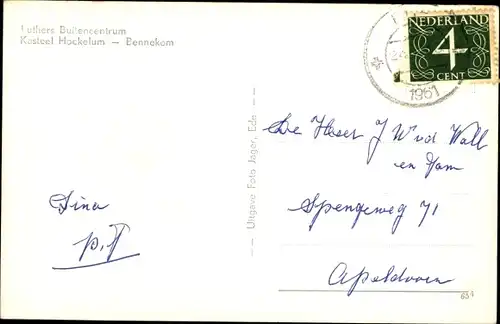 Luthers Buitencentrum
Kasteel Hoekelum — Bennekom
NEDERLAND
4
CENT
1961
Uitgave Foto Jager, Ede
de Heer J W vd Wall
en Fam
Spengeweg 71
Apeldoorn
Dina
p.T